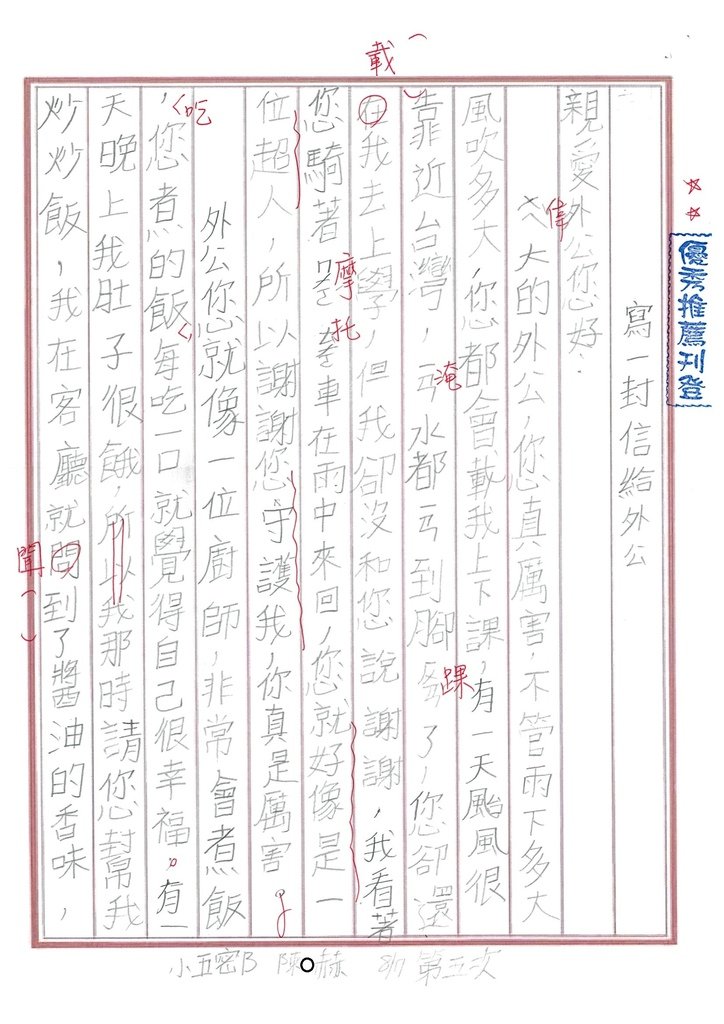 寫一封信給外公
親愛外公您好:
ㄨㄟ大的外公,您真厲害,不管雨下多大
風吹多大,您都會載我上下課,有一天颱風很
靠近台灣ㄧㄢ水都ㄧㄢ到腳ㄌㄨㄛ了,您卻還
在我去上學,但我卻沒和您說謝謝,我看著
您騎著ㄇㄛㄊㄨㄛ車在雨中來回,您就好像是一
位超人,所以謝謝您守護我,你真是厲害
外公您就像一位廚師,非常會煮飯
,您煮的飯每吃一口就覺得自己很幸福。有一
天晚上我肚子很餓,所以我那時請您幫我
炒炒飯,我在客廳就問到了醬油的香味,
載
偉
淹
踝
摩托
吃
聞
優秀推薦刊登
小五密B 陳 赫 8/1 第五次